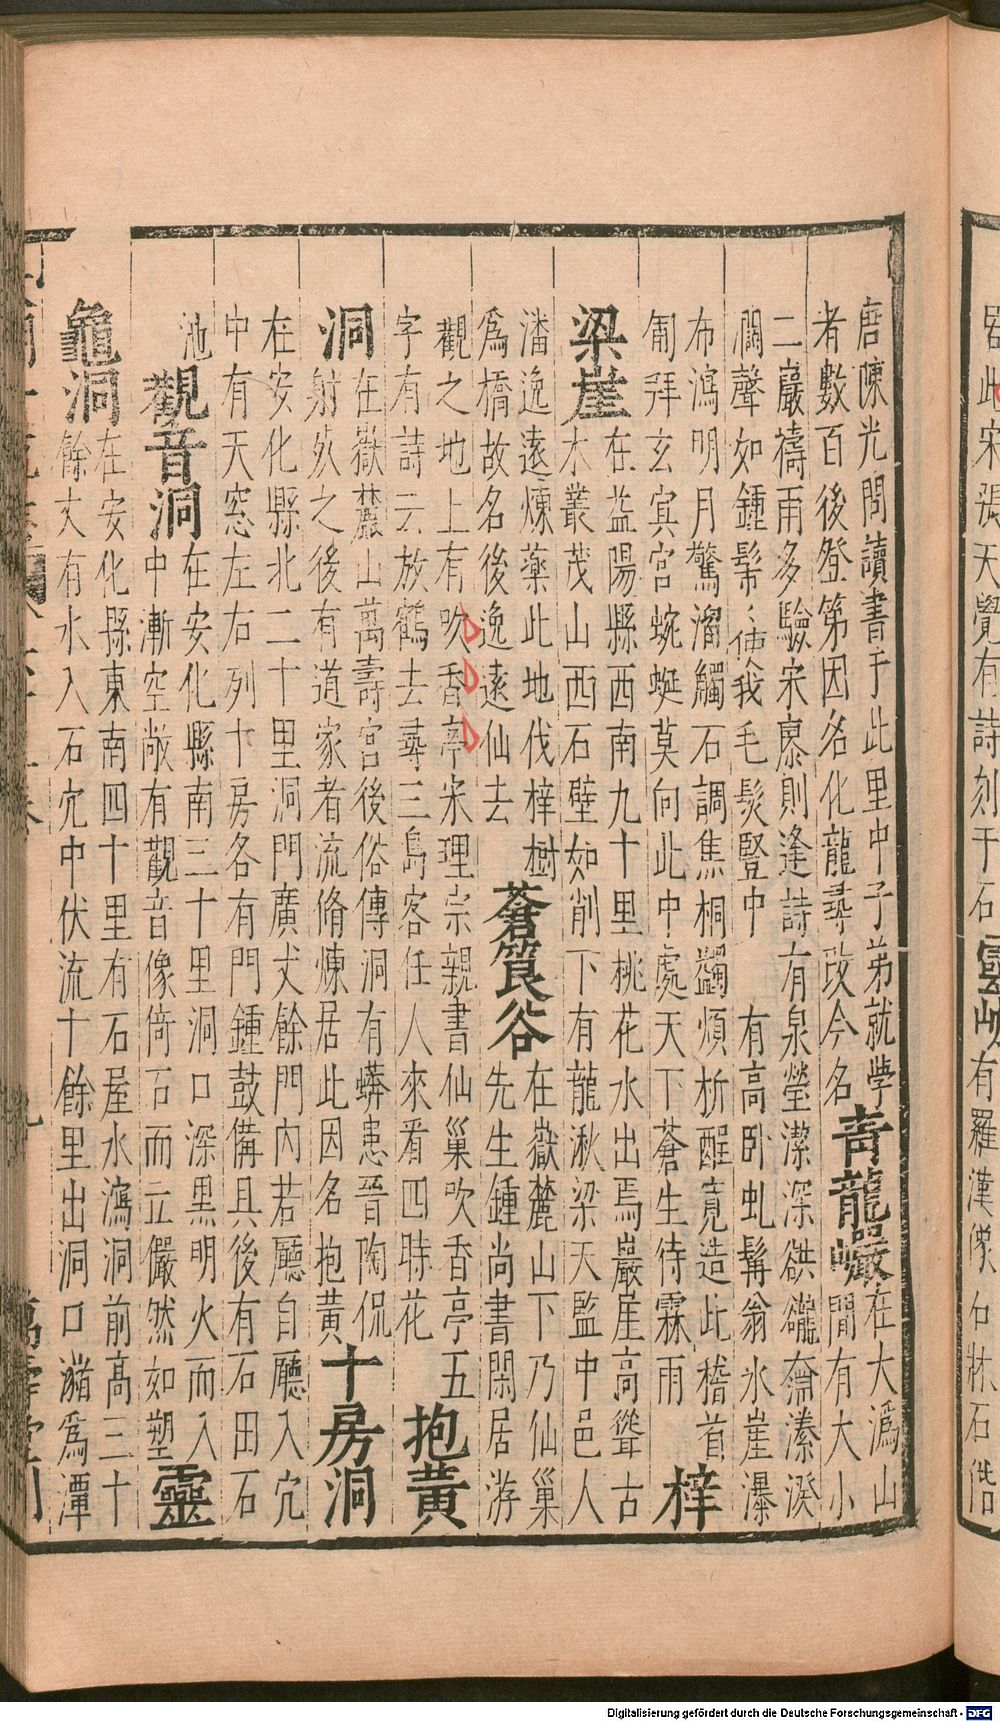 碧此宋張天覺有詩刻于石雲岫有羅漢像石牀石
唐陳光問讀書于此里中子弟就學
者數百後登第因名化龍尋改今名青龍巖在大溈山
間有大小
二巖禱雨多驗宋廖則逢詩有泉瑩潔深
澗聲如鍾鬅鬅使我毛髮豎中有高卧虬髯翁氷崖瀑
布瀉明月驚溜觸石調焦桐蠲煩析酲寬造此稽首
匍拜玄㝠宮蜿蜒莫向此中處天下蒼生待霖雨梓
梁崖在益陽縣西南九十里桃花水出焉巖崖高聳古
木叢茂山西石壁如削下有龍湫梁天監中邑人
潘逸遠煉藥此地伐梓樹
爲橋故名後逸遠仙去蒼筤谷在嶽麓山下乃仙巢
先生鍾尚書閑居游
觀之地上有吹香亭宋理宗親書仙巢吹香亭五
字有詩云放鶴去尋三島客任人來看四時花抱黃
洞在嶽麓山萬壽宮後俗傳洞有蟒患晉陶侃
射殺之後有道家者流脩煉居此因名抱黃十房洞
在安化縣北二十里洞門廣丈餘門內若廳自廳入穴
中有天窓左右列十房各有門鍾鼓備具後有石田石
池觀音洞在安化縣南三十里洞口深黑明火而入
中漸空敞有觀音像倚石而立儼然如塑靈
龜洞在安化縣東南四十里有石屋水瀉洞前高三十
餘丈有水入石穴中伏流十餘里出洞口瀦爲潭
萬壽堂刊
Digitalisierung gefördert durch die Deutsche Forschungsgemeinschaft - DFG